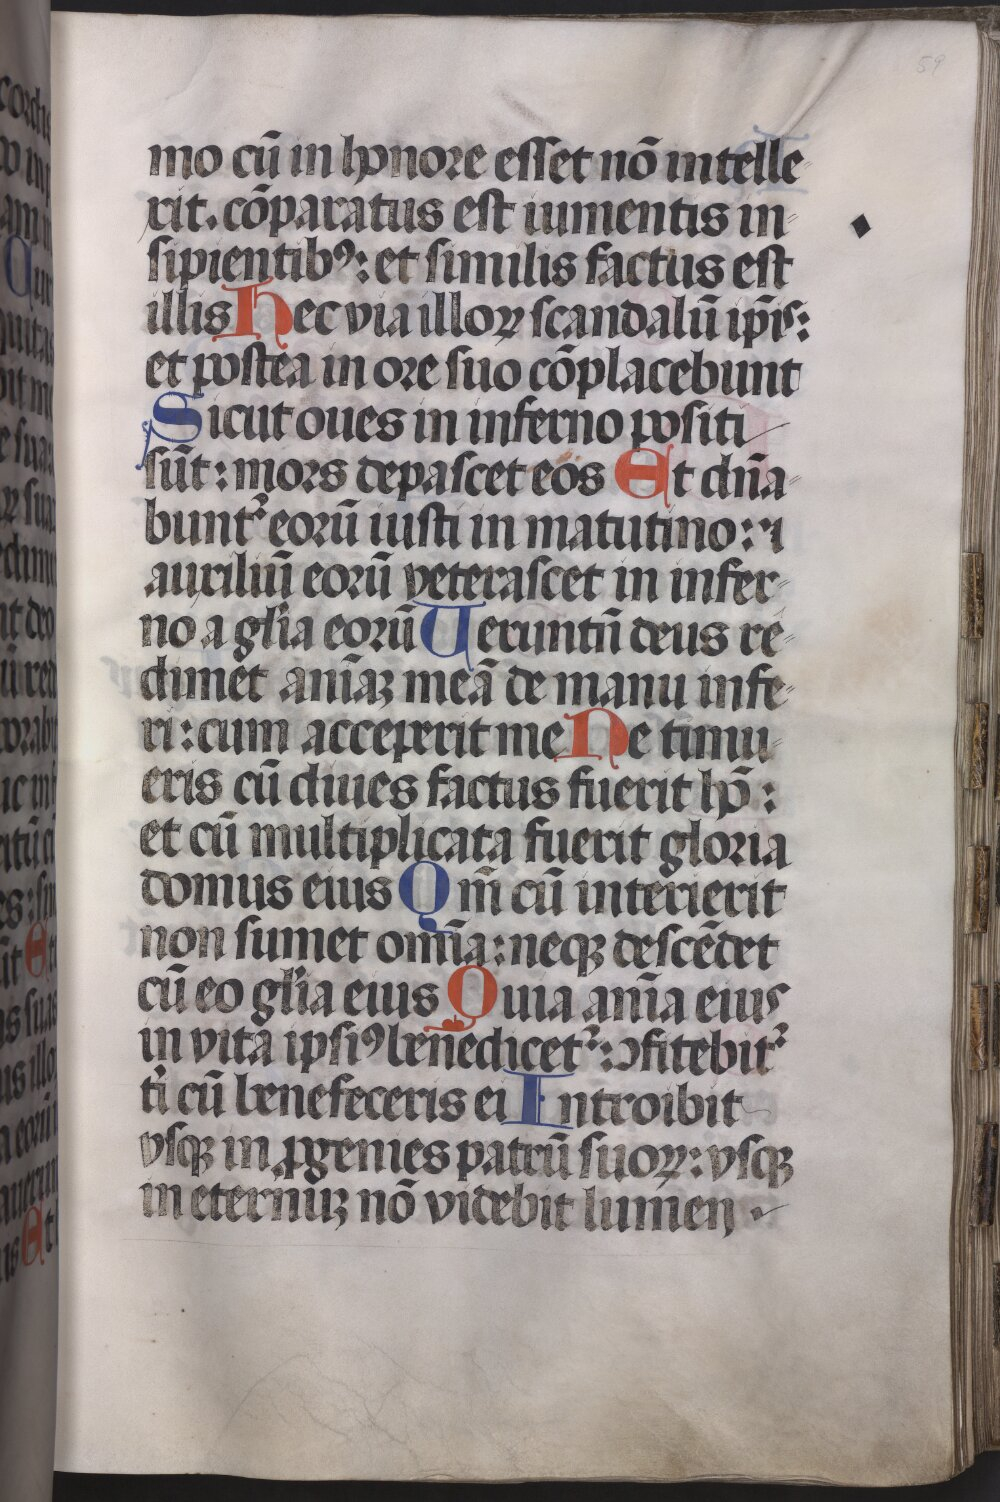 59
mo cū in honore esset nō intelle
xit. cōparatus est iumentis in
sipientibꝰ: et similis factus est
illis Hec via illoꝝ scandalū ip̄is:
et postea in ore suo cōplacebunt
Sicut oues in inferno positi
sūt: mors depascet eos Et dn̄a
bunt᷑ eorū iusti in matutino: ⁊
auxiliū eorū veterascet in infer
no a gl̄ia eorū Ueruntn̄ deus re
dimet anīaꝫ meā de manu infe
ri: cum acceperit me Ne timu
eris cū diues factus fuerit hō:
et cū multiplicata fuerit gloria
domus eius Qm̄ cū interierit
non sumet omīa: neqꝫ descēdet
cū eo gl̄ia eius Quia anīa eius
in vita ipsiꝰ benedicet᷑: ꝯfitebit᷑
ti cū benefeceris ei Introibit
vsqꝫ in ꝓgenies patrū suoꝝ: vsqꝫ
in eternuꝫ nō videbit lumen